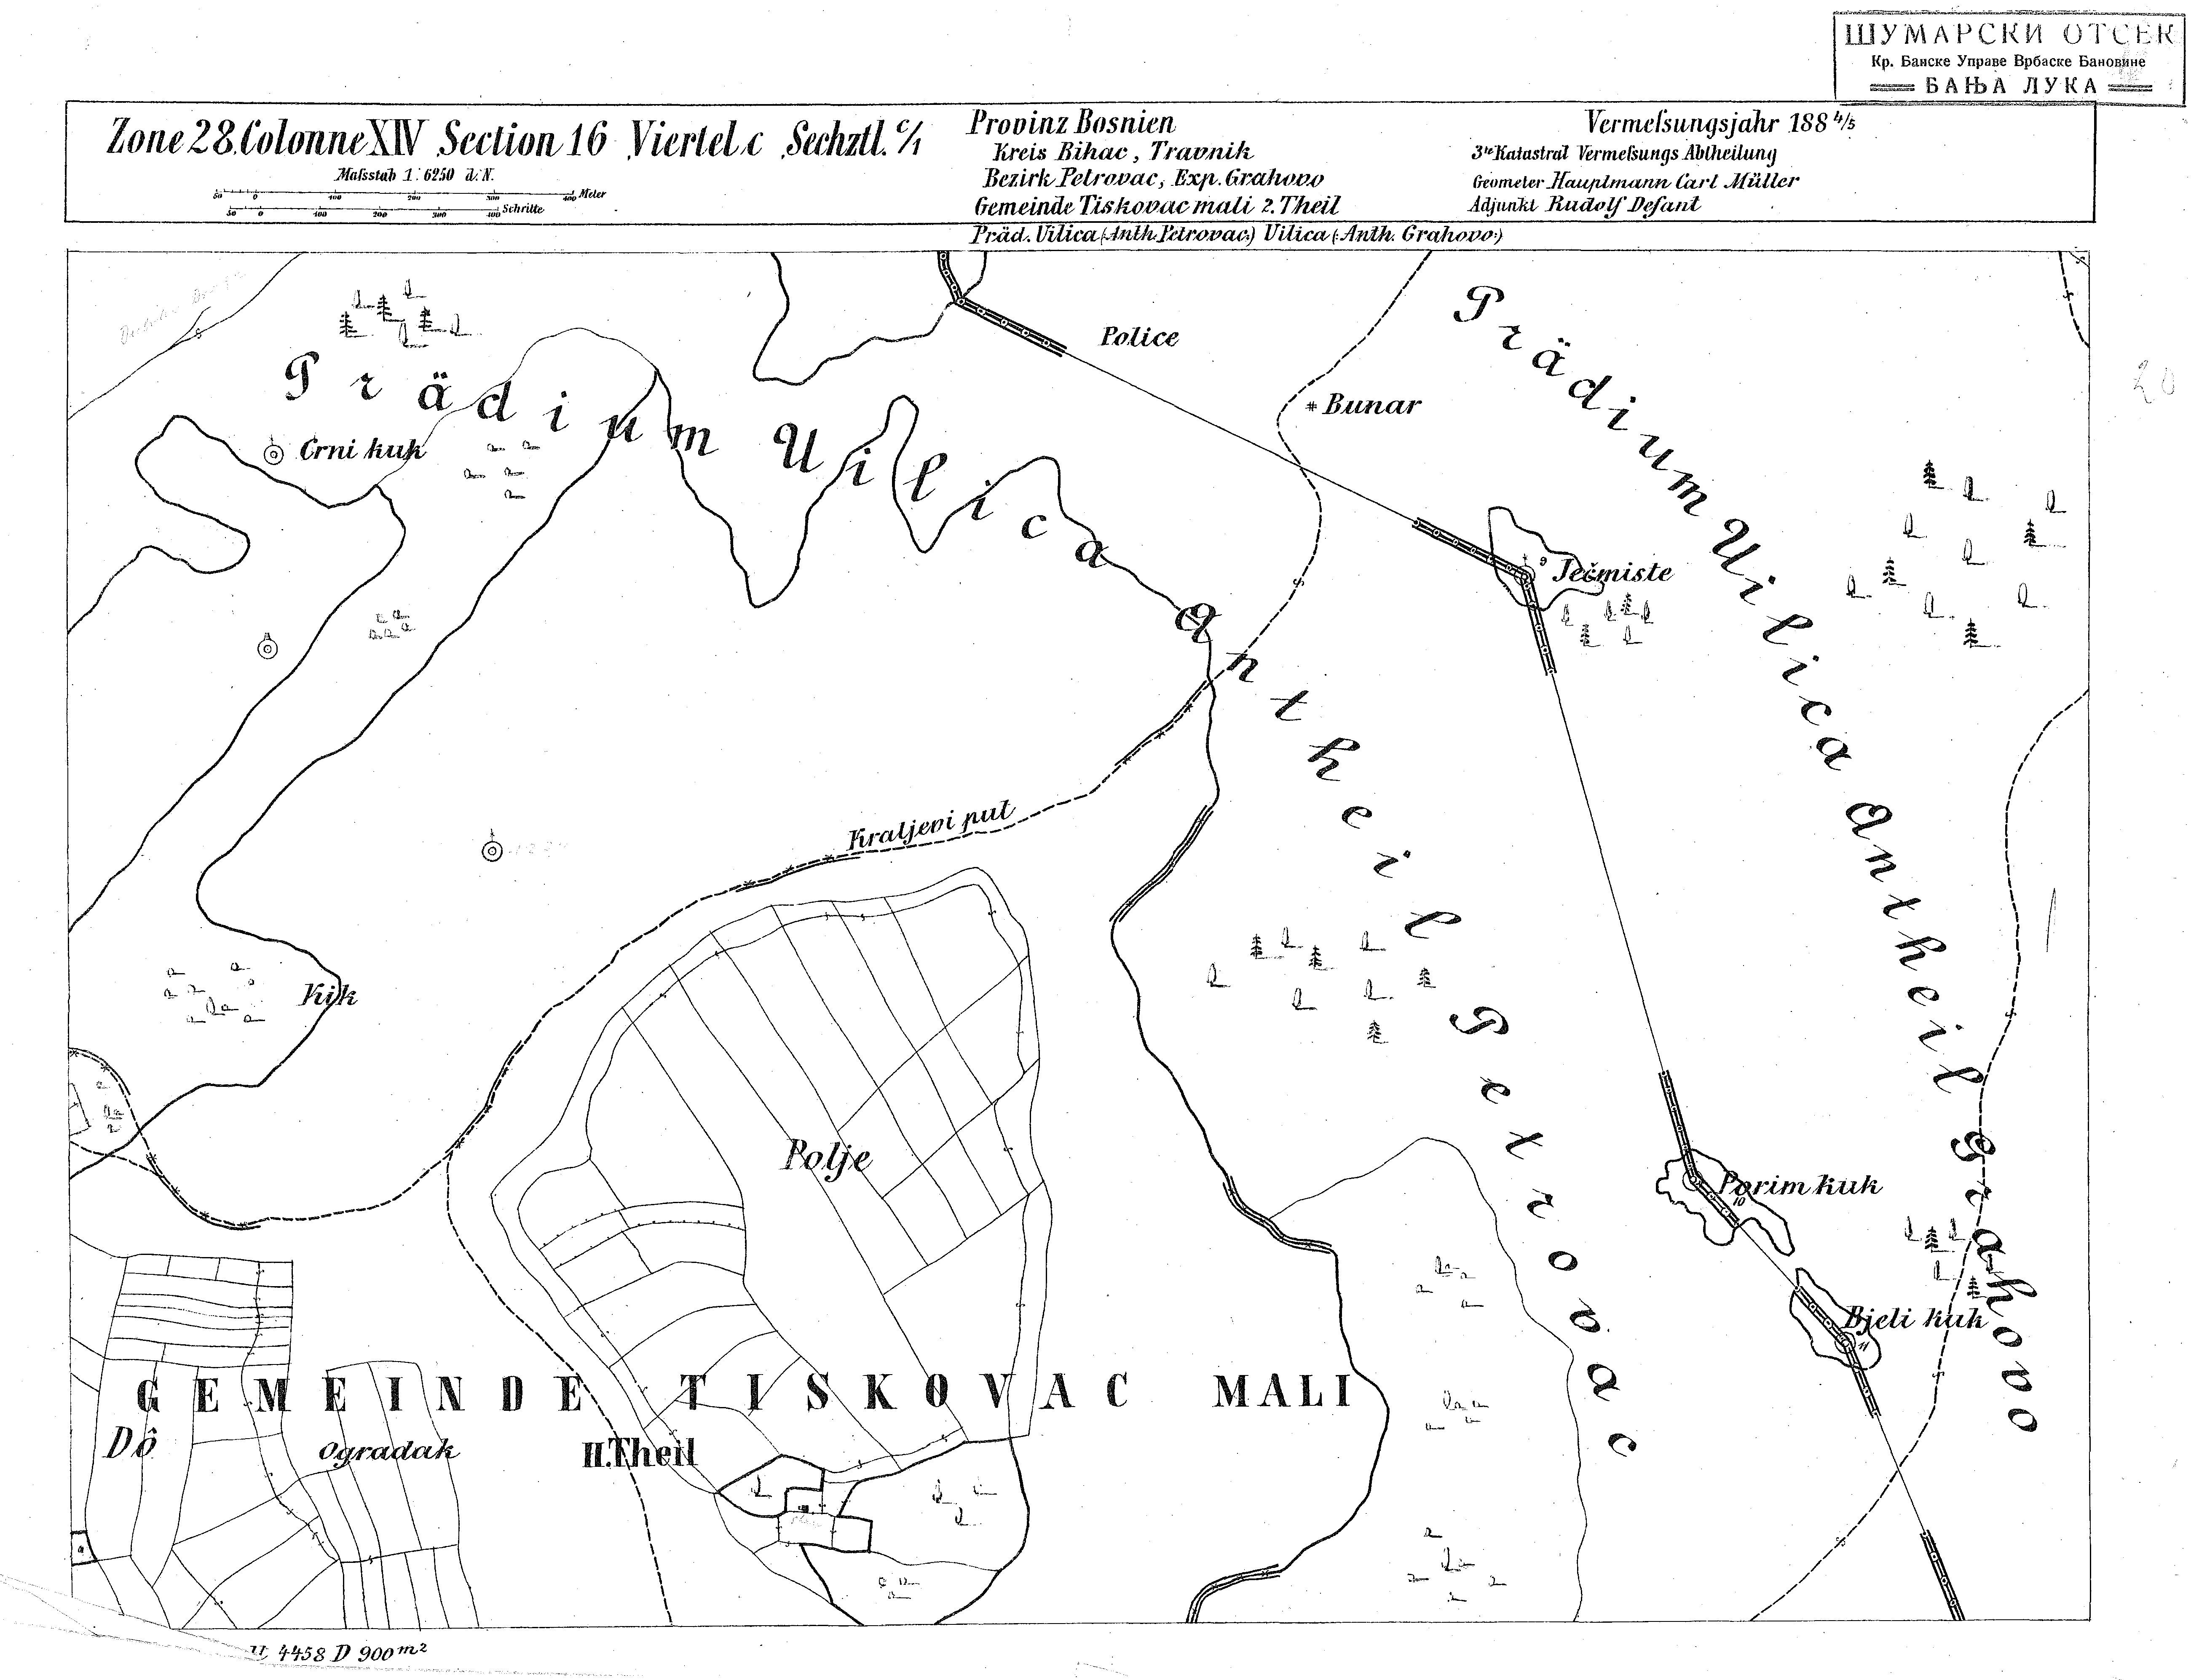 ШУМАРСКИ ОТСЕК
Кр. Банске Управе Врбаске Бановине
БАЊА ЛУКА
Zone 28. Colonne XIV Section 16 Viertel c Sechztl. c/1
Maſsstab 1:6250 d. N.
50 0 100 200 300 400 Meter
50 0 100 200 300 400 Schritte
Provinz Bosnien
Kreis Bihac, Travnik
Bezirk Petrovac, Exp. Grahovo
Gemeinde Tiskovac mali 2. Theil
Präd. Uilica (Anth. Petrovac:) Uilica (:Anth. Grahovo:)
Vermeſsungsjahr 188 4/5
3te Katastral Vermeſsungs Abtheilung
Geometer Hauptmann Carl Müller
Adjunkt Rudolf Defant
Police
Bunar
20
Prädium Uilica Antheil Petrovac
Prädium Uilica Antheil Grahovo
Crni kuk
9 Ječmiste
Kraljevi put
Kik
Polje
Porim kuk
10
Bjeli kuk
11
GEMEINDE TISKOVAC MALI
Dô
Ogradak
II. Theil
4458 D 900 m²